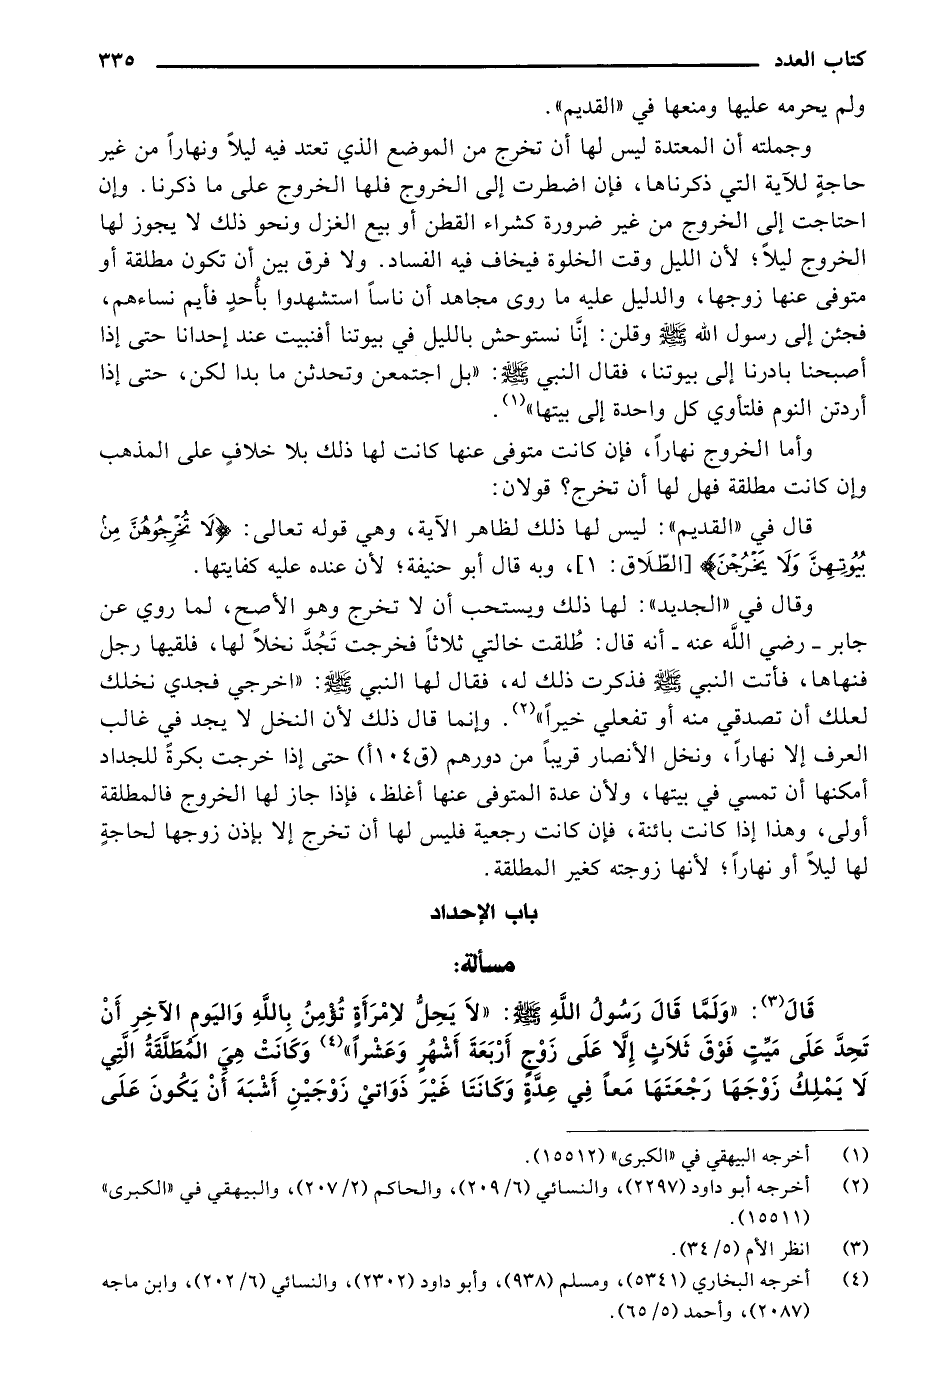 كتاب العدد ٣٣٥
ولم يحرمه عليها ومنعها في «القديم».
وجملته أن المعتدة ليس لها أن تخرج من الموضع الذي تعتد فيه ليلاً ونهاراً من غير
حاجةٍ للآية التي ذكرناها، فإن اضطرت إلى الخروج فلها الخروج على ما ذكرنا. وإن
احتاجت إلى الخروج من غير ضرورة كشراء القطن أو بيع الغزل ونحو ذلك لا يجوز لها
الخروج ليلاً؛ لأن الليل وقت الخلوة فيخاف فيه الفساد. ولا فرق بين أن تكون مطلقة أو
متوفى عنها زوجها، والدليل عليه ما روى مجاهد أن ناساً استشهدوا بأُحدٍ فأيم نساءهم،
فجئن إلى رسول الله ﷺ وقلن: إنَّا نستوحش بالليل في بيوتنا أفنبيت عند إحدانا حتى إذا
أصبحنا بادرنا إلى بيوتنا، فقال النبي ﷺ: «بل اجتمعن وتحدثن ما بدا لكن، حتى إذا
أردتن النوم فلتأوي كل واحدة إلى بيتها»(١).
وأما الخروج نهاراً، فإن كانت متوفى عنها كانت لها ذلك بلا خلافٍ على المذهب
وإن كانت مطلقة فهل لها أن تخرج؟ قولان:
قال في «القديم»: ليس لها ذلك لظاهر الآية، وهي قوله تعالى: ﴿لَا تُخْرِجُوهُنَّ مِنْ
بُيُوتِهِنَّ وَلَا يَخْرُجْنَ﴾ [الطّلَاق: ١]، وبه قال أبو حنيفة؛ لأن عنده عليه كفايتها.
وقال في «الجديد»: لها ذلك ويستحب أن لا تخرج وهو الأصح، لما روي عن
جابر ـ رضي اللَّه عنه ـ أنه قال: طُلقت خالتي ثلاثاً فخرجت تَجُدَّ نخلاً لها، فلقيها رجل
فنهاها، فأتت النبي ﷺ فذكرت ذلك له، فقال لها النبي ﷺ: «اخرجي فجدي نخلك
لعلك أن تصدقي منه أو تفعلي خيراً»(٢). وإنما قال ذلك لأن النخل لا يجد في غالب
العرف إلا نهاراً، ونخل الأنصار قريباً من دورهم (ق١٠٤أ) حتى إذا خرجت بكرةً للجداد
أمكنها أن تمسي في بيتها، ولأن عدة المتوفى عنها أغلظ، فإذا جاز لها الخروج فالمطلقة
أولى، وهذا إذا كانت بائنة، فإن كانت رجعية فليس لها أن تخرج إلا بإذن زوجها لحاجةٍ
لها ليلاً أو نهاراً؛ لأنها زوجته كغير المطلقة.
باب الإحداد
مسألة:
قَالَ(٣): «وَلَمَّا قَالَ رَسُولُ اللَّهِ ﷺ: «لاَ يَحِلُّ لاِمْرَأَةٍ تُؤْمِنُ بِاللَّهِ وَاليَومِ الآخِرِ أَنْ
تَحِدَّ عَلَى مَيِّتٍ فَوْقَ ثَلاَثٍ إِلَّا عَلَى زَوْجٍ أَرْبَعَةَ أَشْهُرٍ وَعَشْراً»(٤) وَكَانَتْ هِيَ المُطَلَّقَةُ الَّتِي
لَا يَمْلِكُ زَوْجُهَا رَجْعَتَهَا مَعاً فِي عِدَّةٍ وَكَانَتَا غَيْرَ ذَوَاتَيْ زَوْجَيْنِ أَشْبَهَ أَنْ يَكُونَ عَلَى
(١) أخرجه البيهقي في «الكبرى» (١٥٥١٢).
(٢) أخرجه أبو داود (٢٢٩٧)، والنسائي (٦/ ٢٠٩)، والحاكم (٢/ ٢٠٧)، والبيهقي في «الكبرى»
(١٥٥١١).
(٣) انظر الأم (٥/ ٣٤).
(٤) أخرجه البخاري (٥٣٤١)، ومسلم (٩٣٨)، وأبو داود (٢٣٠٢)، والنسائي (٦/ ٢٠٢)، وابن ماجه
(٢٠٨٧)، وأحمد (٥/ ٦٥).